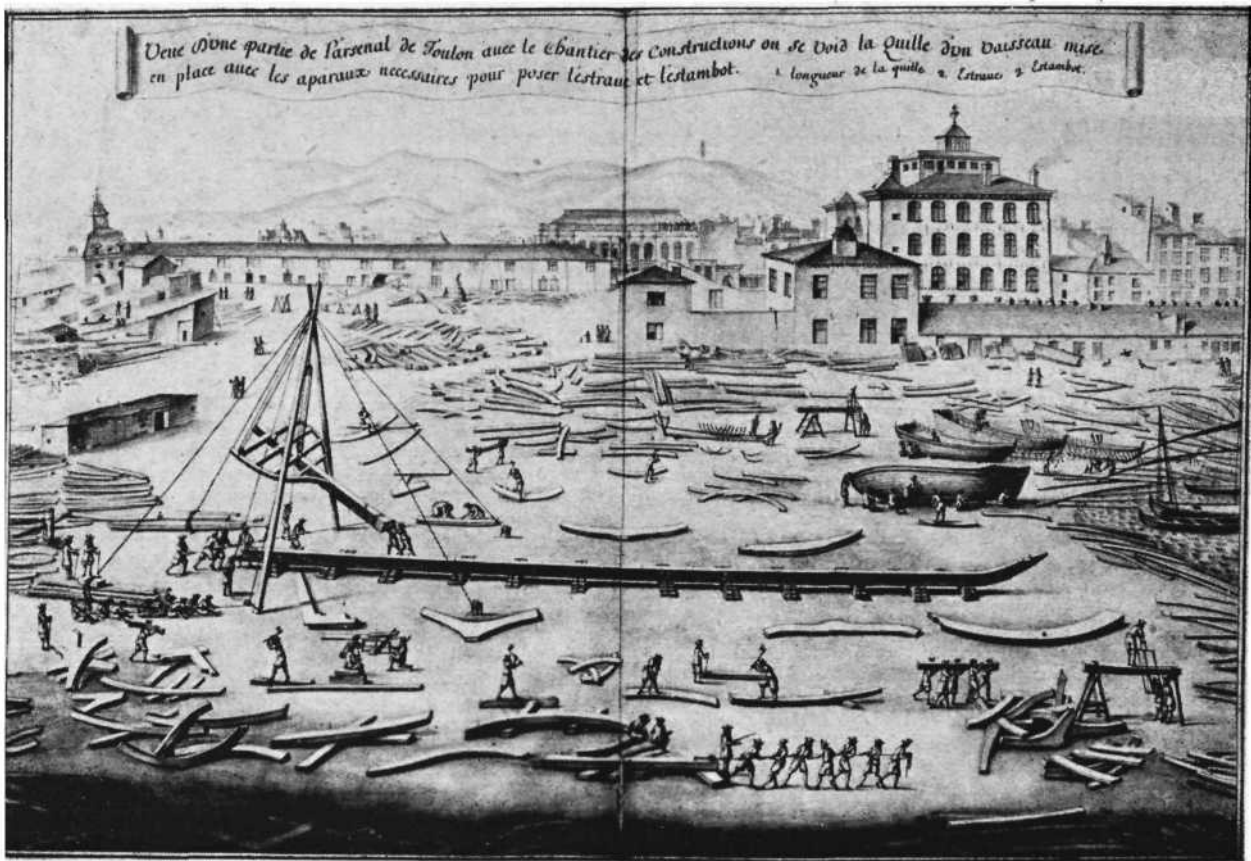 Veue d'vne partie de l'arsenal de Toulon auec le Chantier des Constructions ou se void la Quille d'vn vaisseau mise
en place auec les aparaux necessaires pour poser lestraue et lestambot. 1 longueur de la quille 2. Estraue 3 Estambot.